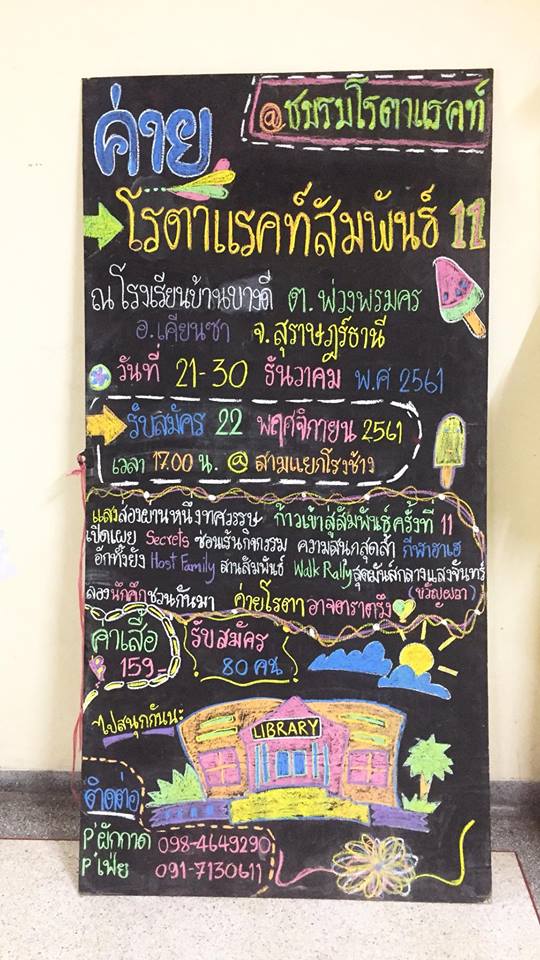 ค่าย
@ชมรมโรตาแรคท์
โรตาแรคท์สัมพันธ์ 11
ณ โรงเรียนบ้านบางดี ต.พ่วงพรมคร
อ.เคียนซา จ.สุราษฎร์ธานี
วันที่ 21-30 ธันวาคม พ.ศ 2561
รับสมัคร 22 พฤศจิกายน 2561
เวลา 17.00 น. @ สามแยกโรงช้าง
แสงส่องผ่านหนึ่งทศวรรษ ก้าวเข้าสู่สัมพันธ์ครั้งที่ 11
เปิดเผย Secrets ซ่อนเร้นกิจกรรม ความสนุกสุดล้ำ กีฬาฮาเฮ
อีกทั้งยัง Host Family สานสัมพันธ์ Walk Rally สุดมันส์กลางแสงจันทร์
ลองนึกคึกชวนกันมา ค่ายโรตาอาจตราตรึง (ขวัญผวา)
ค่าเสื้อ
159.-
รับสมัคร
80 คน
~ไปสนุกกันนะ
LIBRARY
ติดต่อ
P'ผักกาด 098-4649290
P'เฟย 091-7130611